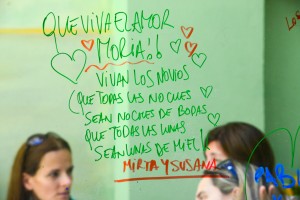 QUE VIVA EL AMOR
MORIA!!
VIVAN LOS NOVIOS
QUE TODAS LAS NOCHES
SEAN NOCHES DE BODAS
QUE TODAS LAS LUNAS
SEAN LUNAS DE MIEL!
MIRTA Y SUSANA